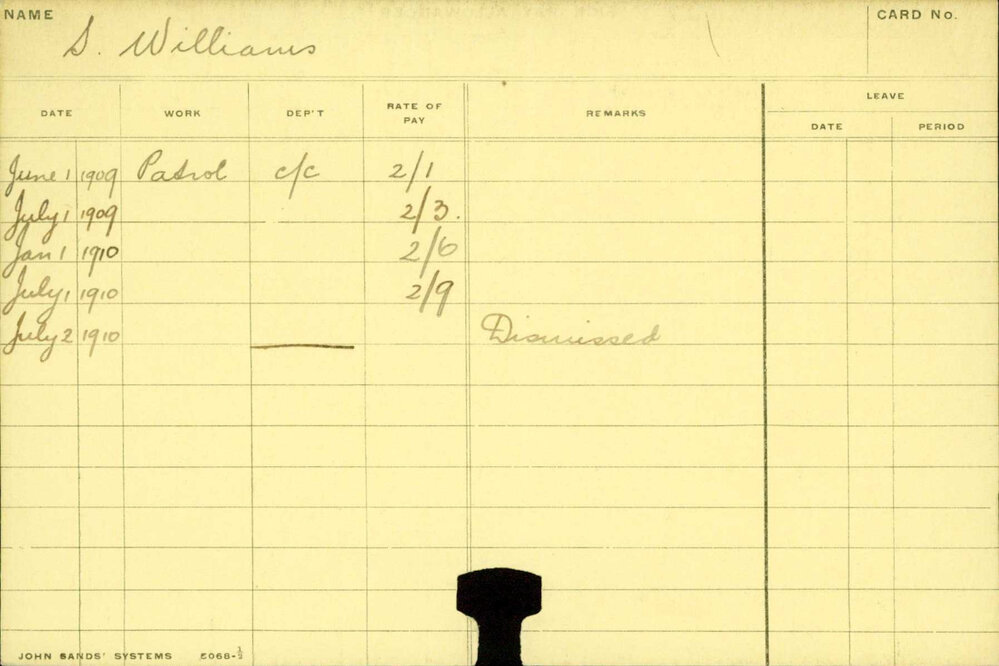 NAME S. Williams CARD No.
DATE WORK DEP'T RATE OF PAY REMARKS LEAVE
DATE PERIOD
June 1 1909 Patrol c/c 2/1
July 1 1909 2/3.
Jan 1 1910 2/6
July 1 1910 2/9
July 2 1910 Dismissed
JOHN SANDS' SYSTEMS 5068-½